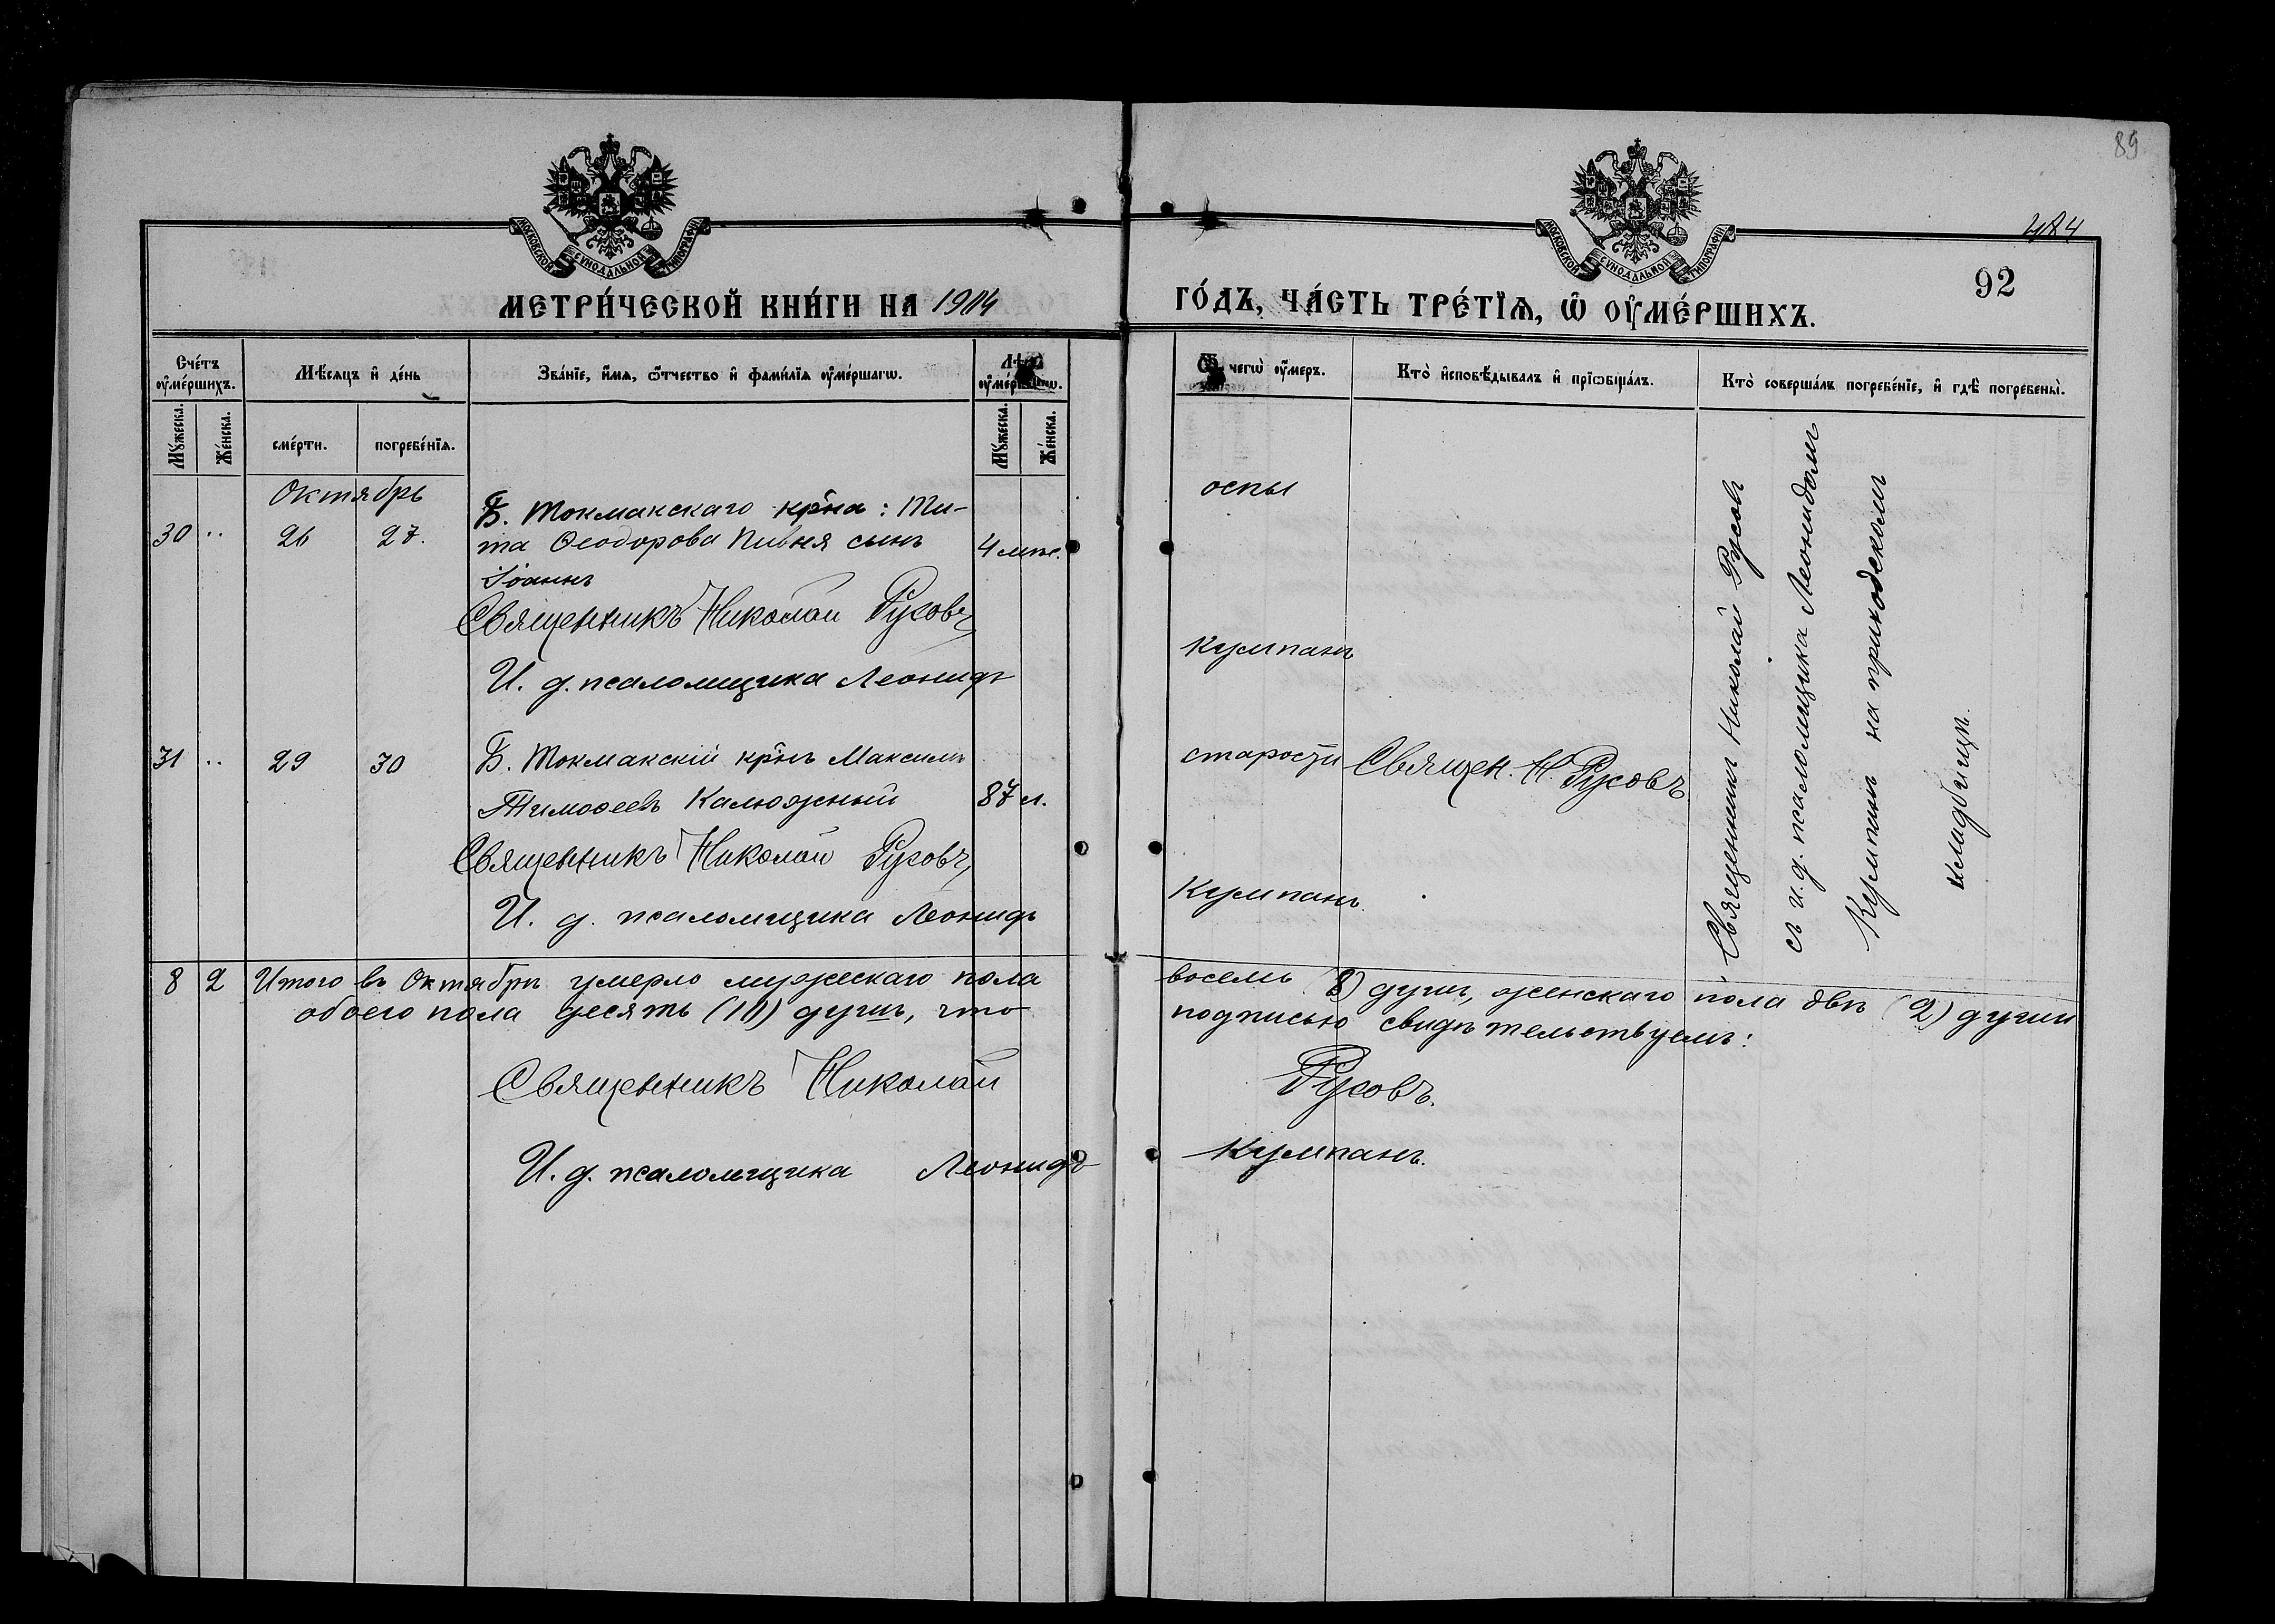 89
484
92
МОСКОВСКОЙ СѴНОДАЛЬНОЙ ТИПОГРАФІИ
МОСКОВСКОЙ СѴНОДАЛЬНОЙ ТИПОГРАФІИ
МЕТРИ́ЧЕСКОЙ КНИ́ГИ НА 1914
ГО́ДЪ, ЧА́СТЬ ТРЕ́ТЇѦ, Ѡ҆ ОУ҆МЕ́РШИХЪ.
Сче́тъ оу҆ме́ршихъ.
Мꙋ́жеска.
Же́нска.
Мѣ́сяцъ и҆ де́нь
сме́рти.
погребе́нїѧ.
Зва́нїе, и҆́мѧ, ѻ҆́тчество и҆ фами́лїѧ оу҆ме́ршагѡ.
Лѣ́та оу҆ме́ршагѡ.
Мꙋ́жеска.
Же́нска.
Ѿ чегѡ̀ оу҆́меръ.
Кто̀ и҆сповѣ́дывалъ и҆ прїѡбща́лъ.
Кто̀ соверша́лъ погребе́нїе, и҆ гдѣ̀ погребены̀.
Октябрь
30 .. 26 27. Б. Токмакскаго кр̃на: Ти-
та Ѳеодорова Пивня сынъ 4 мѣс.
Іоаннъ
оспы
Священникъ Николай Русовъ
И. д. псаломщика Леонидъ
Кумпанъ
31 .. 29 30 Б. Токмакскій кр̃нъ Максимъ
Тимоѳеевъ Калюжный 87 л.
старости Священ. Н. Русовъ
Священникъ Николай Русовъ
И. д. псаломщика Леонидъ
Кумпанъ.
Священникъ Николай Русовъ
съ и. д. псаломщика Леонидомъ
Кумпанъ на приходскомъ
кладбищѣ.
8 2 Итого въ Октябрѣ умерло мужескаго пола восемь (8) душъ, женскаго пола двѣ (2) души
обоего пола десять (10) душъ, что подписью свидѣтельствуемъ:
Священникъ Николай Русовъ.
И. д. псаломщика Леонидъ Кумпанъ.